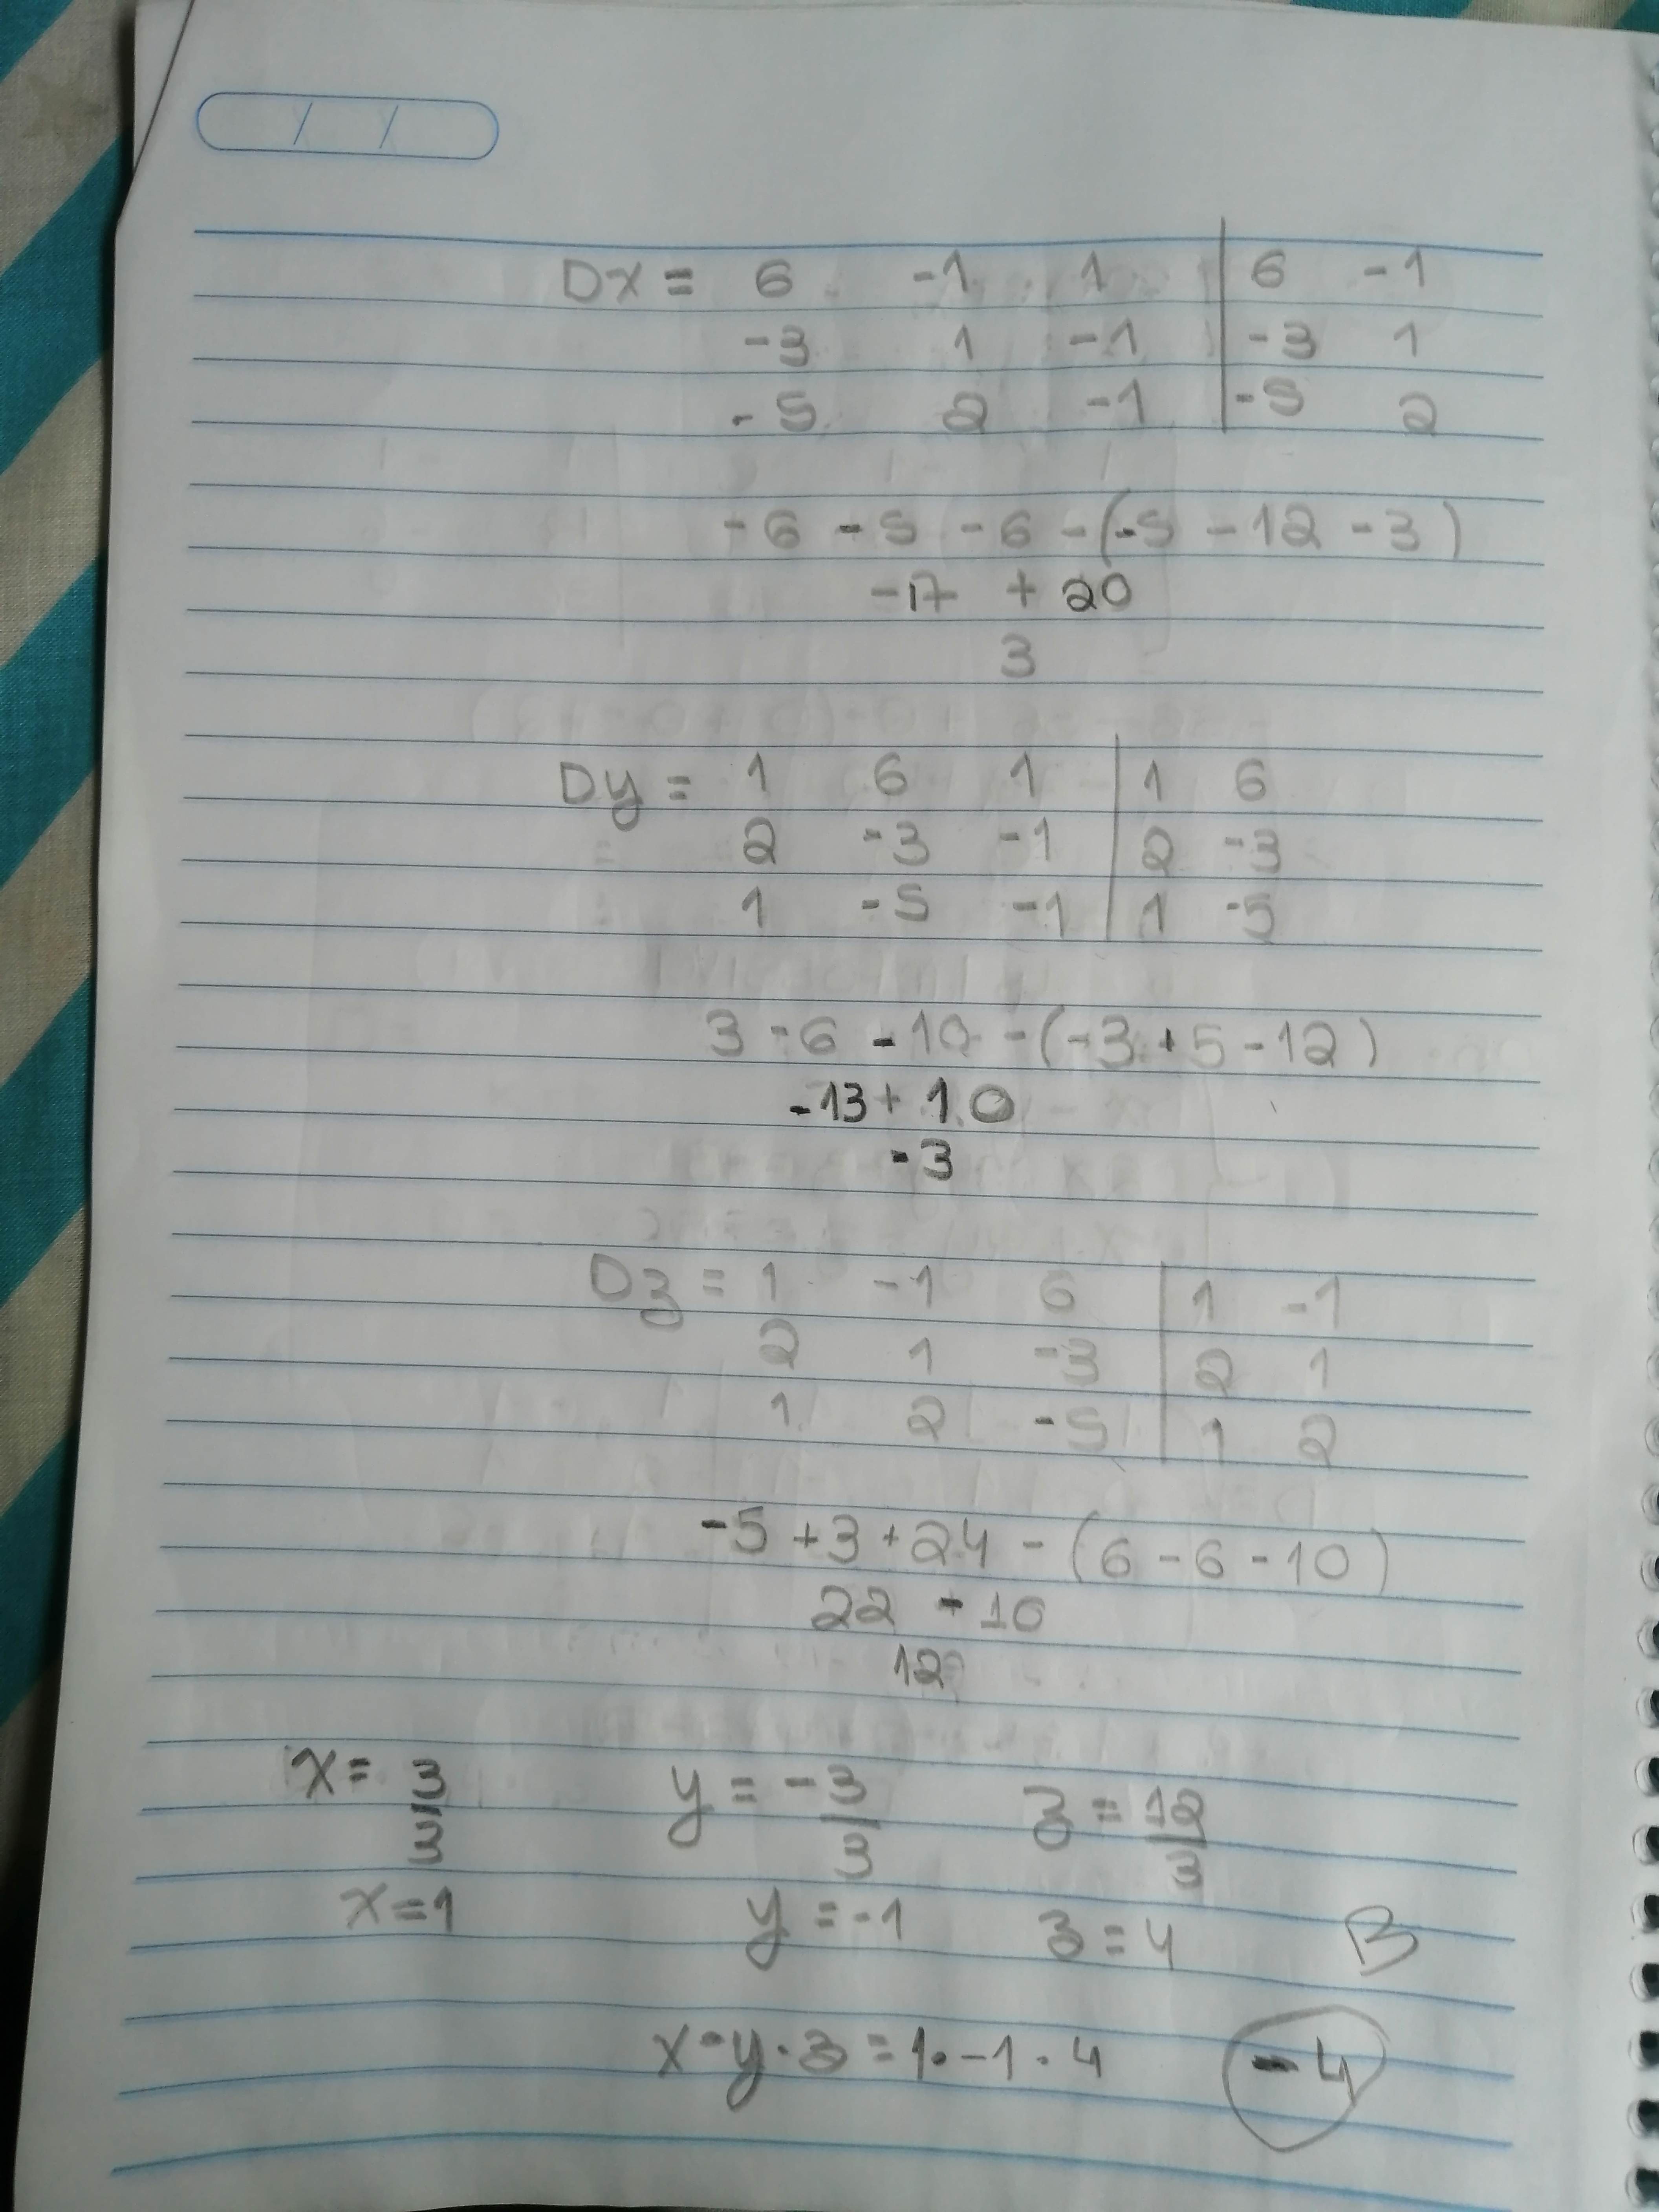 Dx = 6 -1 1 | 6 -1
-3 1 -1 | -3 1
-5 2 -1 | -5 2
-6 -5 -6 -(-5 -12 -3)
-17 + 20
3
Dy = 1 6 1 | 1 6
2 -3 -1 | 2 -3
1 -5 -1 | 1 -5
3 -6 -10 -(-3 +5 -12)
-13 + 10
-3
Dz = 1 -1 6 | 1 -1
2 1 -3 | 2 1
1 2 -5 | 1 2
-5 +3 +24 -(6 -6 -10)
22 - 10
12
x = 3/3 y = -3/3 z = 12/3
x = 1 y = -1 z = 4 B
x·y·z = 1·-1·4 -4